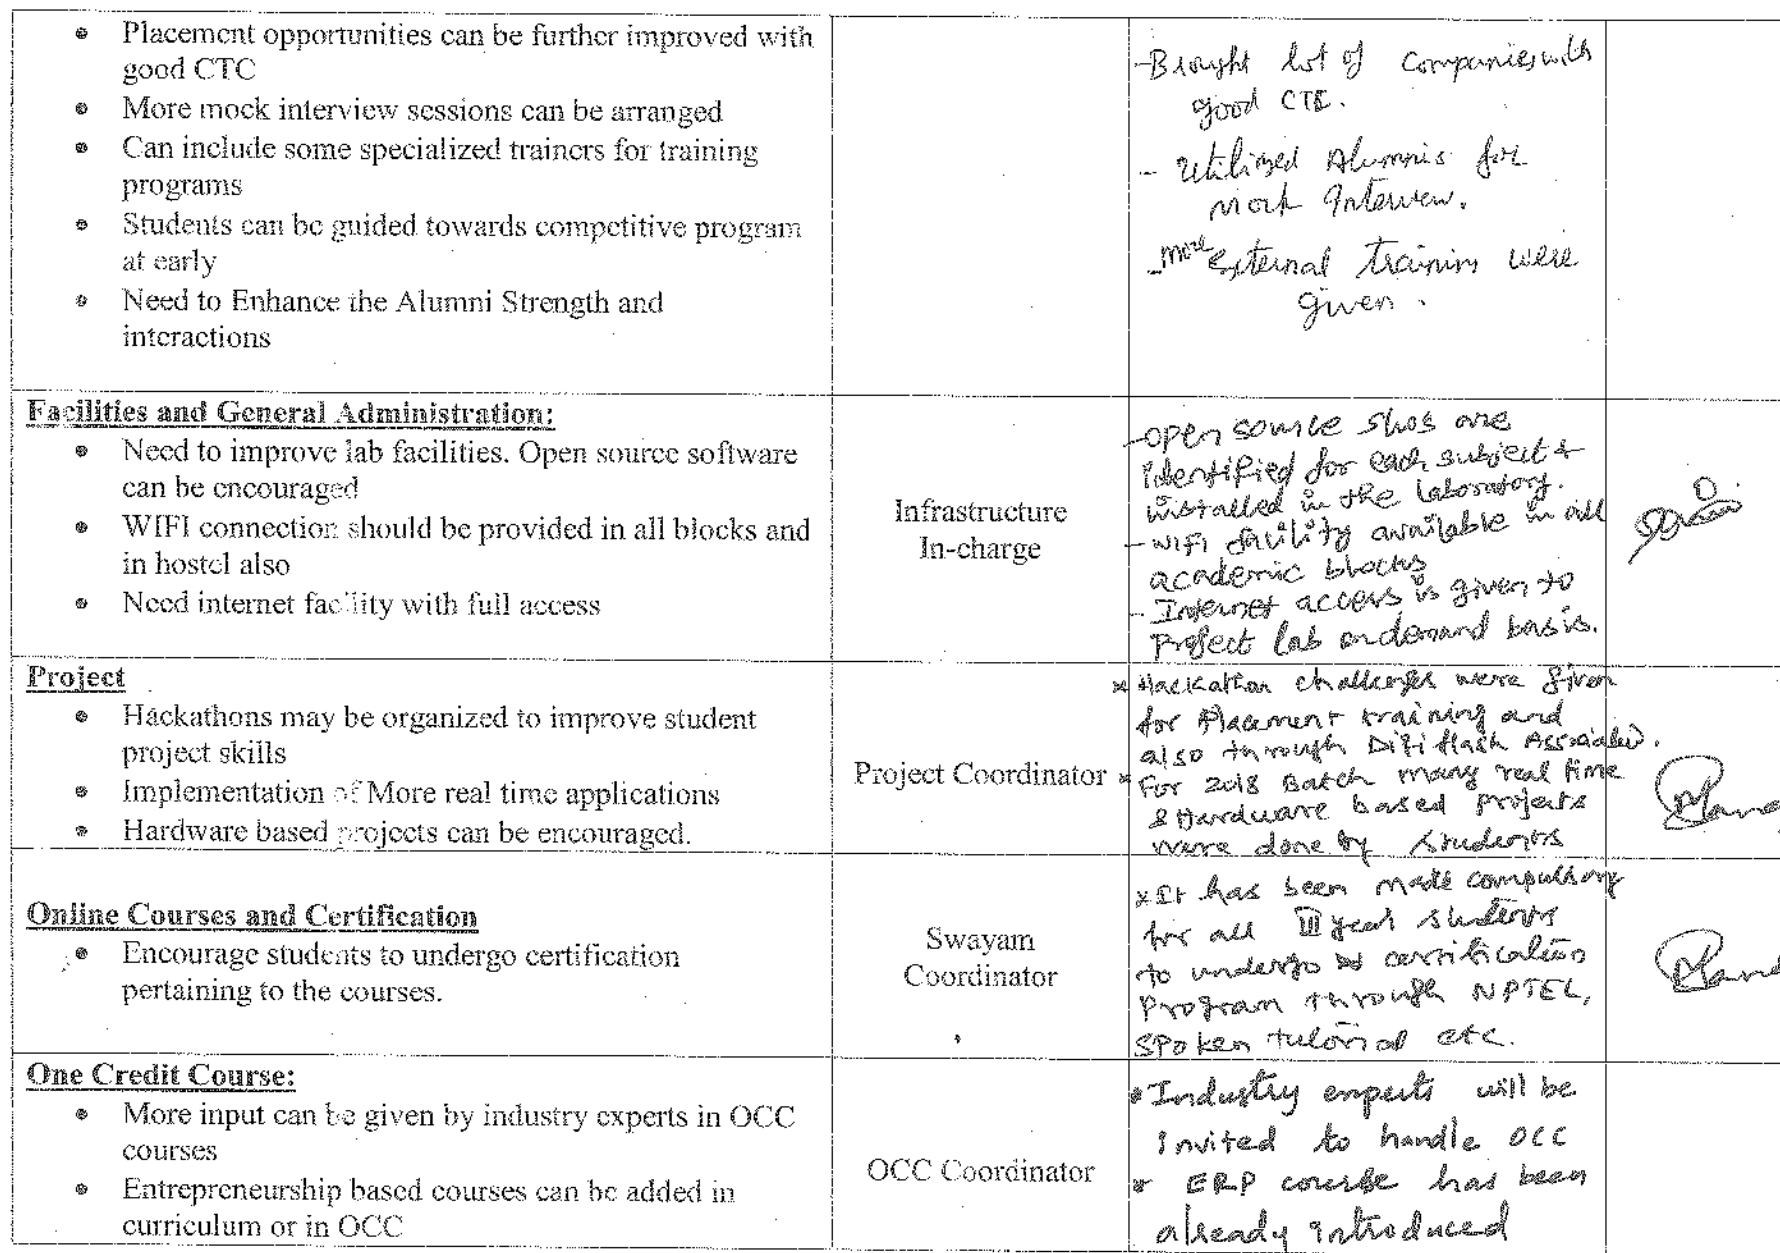 • Placement opportunities can be further improved with
good CTC
• More mock interview sessions can be arranged
• Can include some specialized trainers for training
programs
• Students can be guided towards competitive program
at early
• Need to Enhance the Alumni Strength and
interactions
- Brought lot of Companies with
good CTC.
- Utilized Alumnis for
mock Interview.
- more external training were
given.
Facilities and General Administration:
• Need to improve lab facilities. Open source software
can be encouraged
• WIFI connection should be provided in all blocks and
in hostel also
• Need internet facility with full access
Infrastructure
In-charge
- open source are
identified for each subject &
installed in the laboratory.
- WIFI facility available in all
academic blocks
- Internet access is given to
Project lab on demand basis.
Project
• Hackathons may be organized to improve student
project skills
• Implementation of More real time applications
• Hardware based projects can be encouraged.
Project Coordinator
* Hackathon challenges were given
for Placement training and
also through flash
* For 2018 Batch many real time
& Hardware based projects
were done by students
Online Courses and Certification
• Encourage students to undergo certification
pertaining to the courses.
Swayam
Coordinator
* It has been made compulsory
for all III year students
to undergo certification
Program through NPTEL,
Spoken tutorial etc.
One Credit Course:
• More input can be given by industry experts in OCC
courses
• Entrepreneurship based courses can be added in
curriculum or in OCC
OCC Coordinator
* Industry experts will be
Invited to handle OCC
* ERP course has been
already introduced